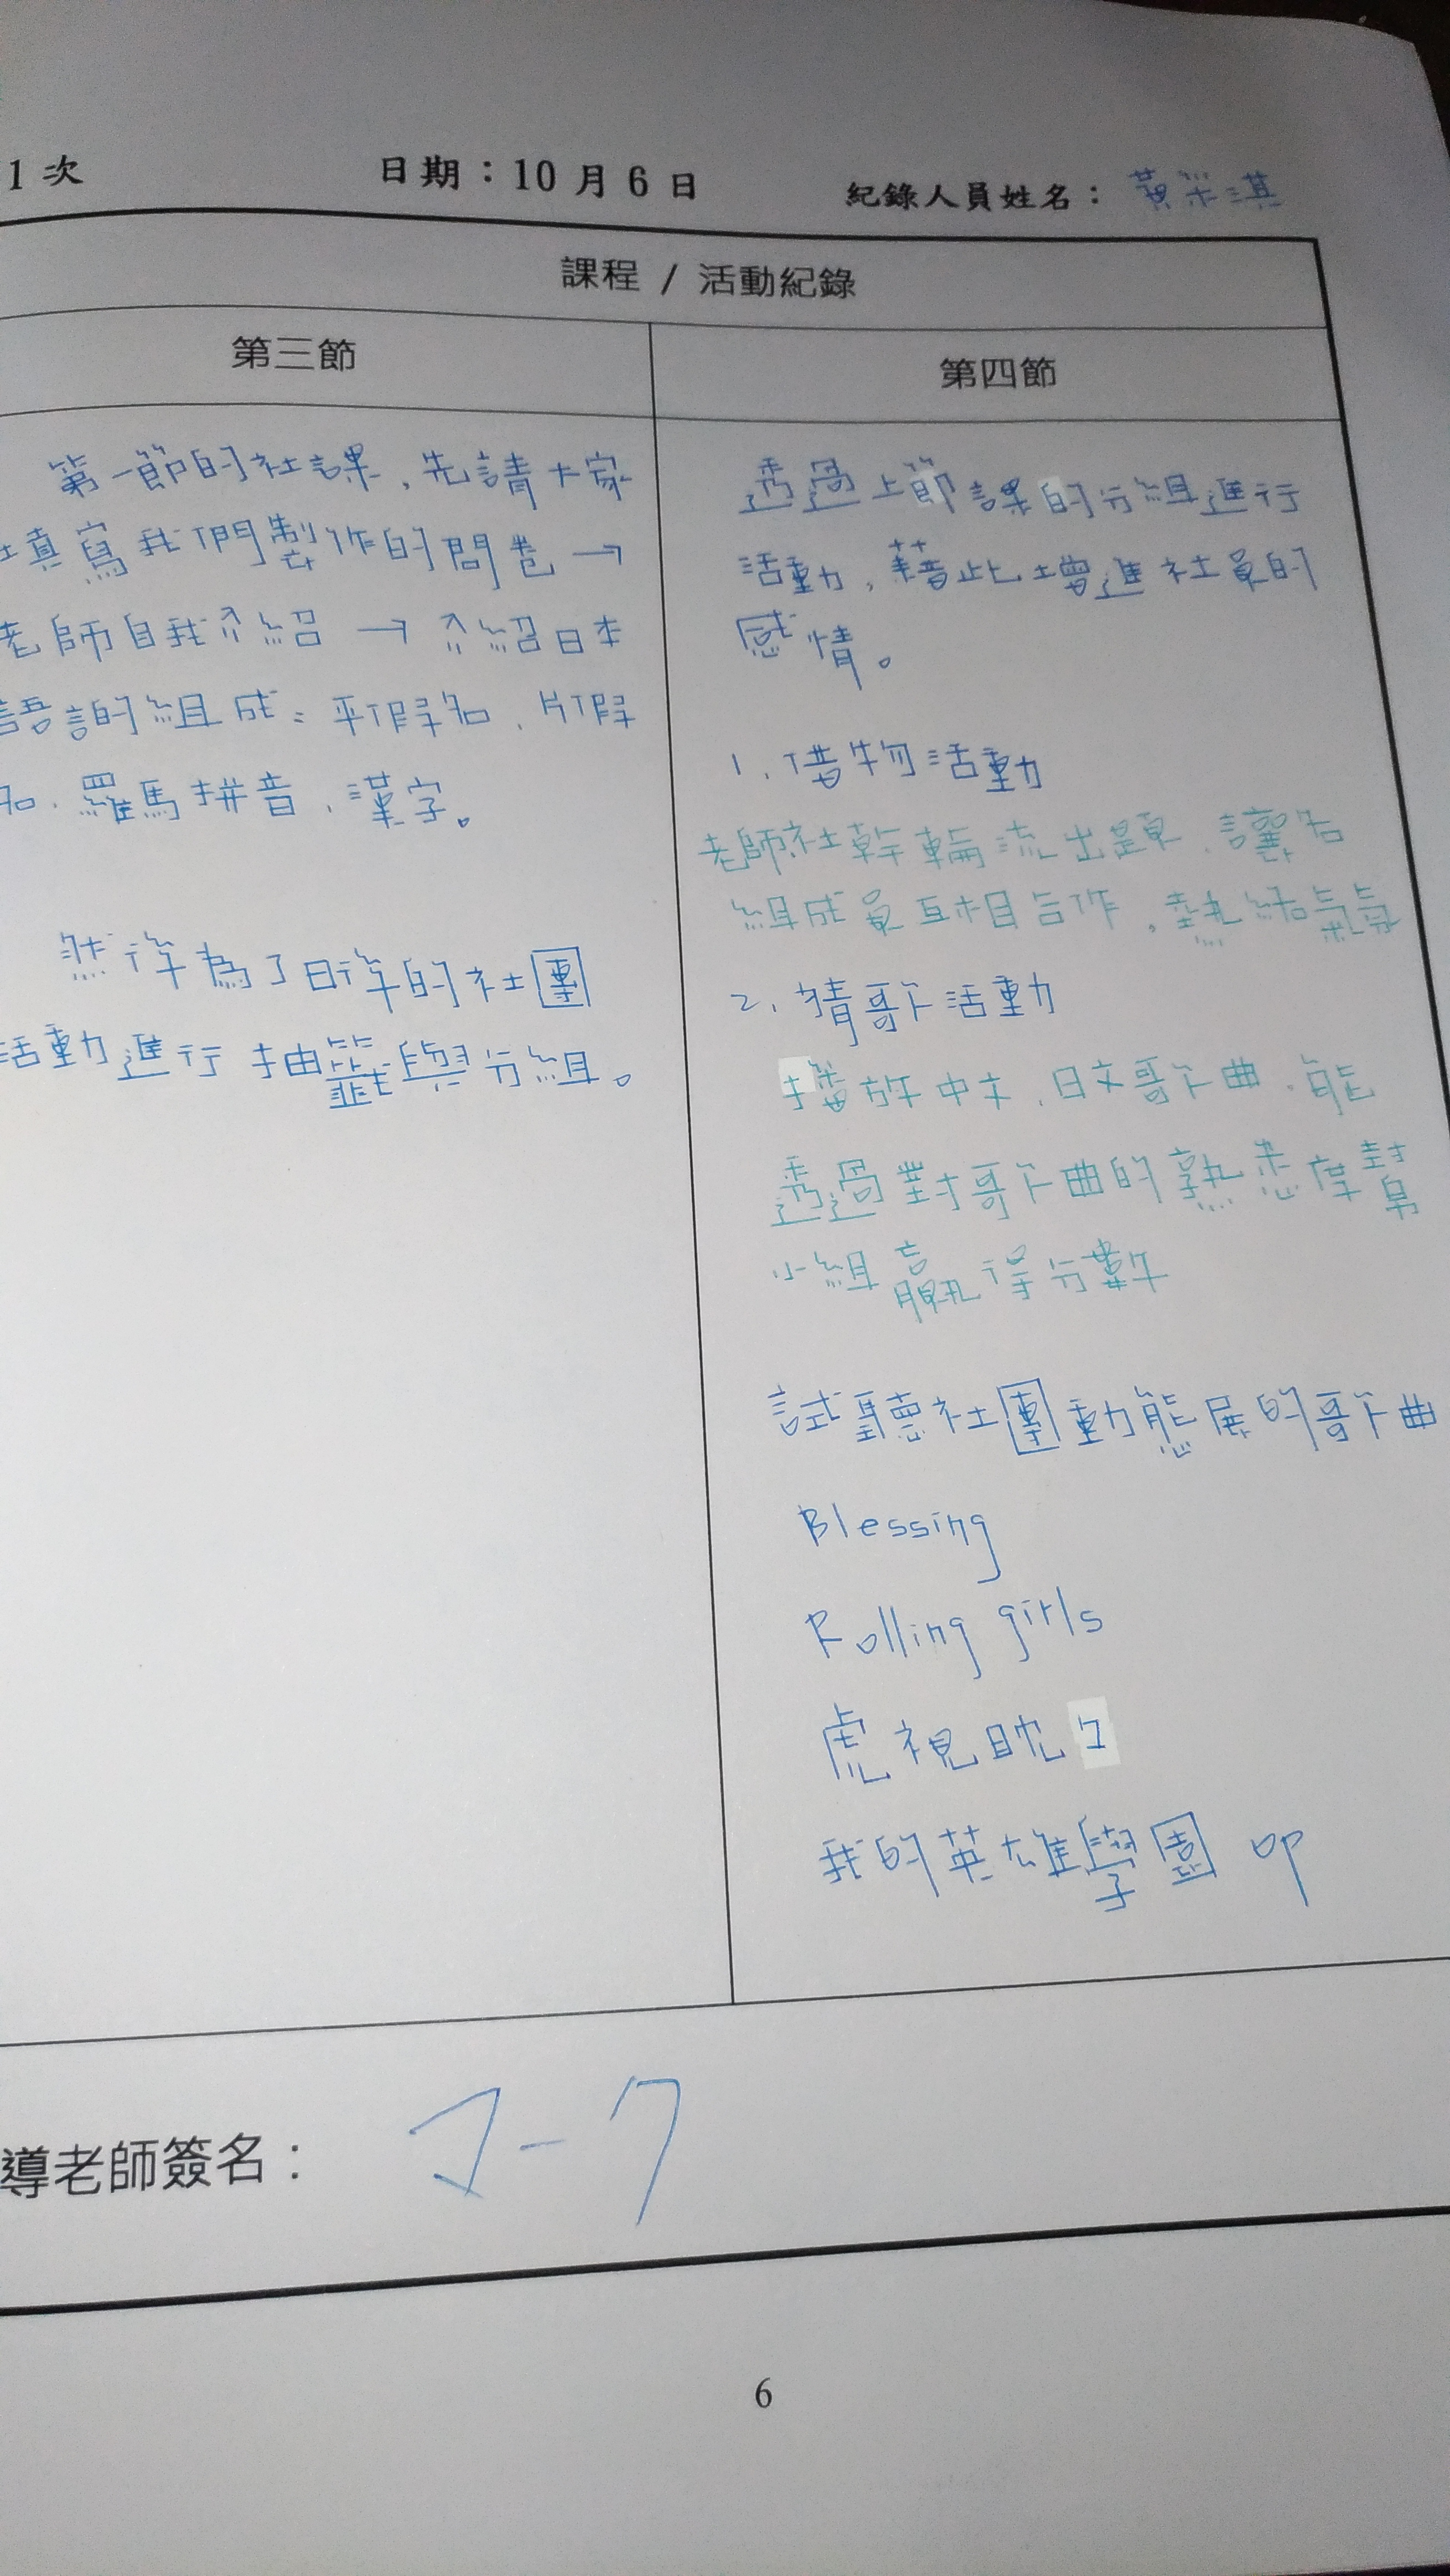 1 次 日期：10 月 6 日 紀錄人員姓名： 黃
課程 / 活動紀錄
第三節
第一節的社課，先請大家
填寫我們製作的問卷→
老師自我介紹 → 介紹日本
語的組成：平假名、片假
名、羅馬拼音、漢字。
然後為了日後的社團
活動進行抽籤與分組。
第四節
透過上節課的分組進行
活動，藉此增進社員的
感情。
1. 借物活動
老師、社幹輪流出題，讓各
組成員互相合作，熱絡氣氛
2. 猜歌活動
播放中文、日文歌曲，能
透過對歌曲的熟悉度幫
小組贏得分數
試聽社團動態展的歌曲
Blessing
Rolling girls
虎視眈々
我的英雄學園 op
導老師簽名：
6